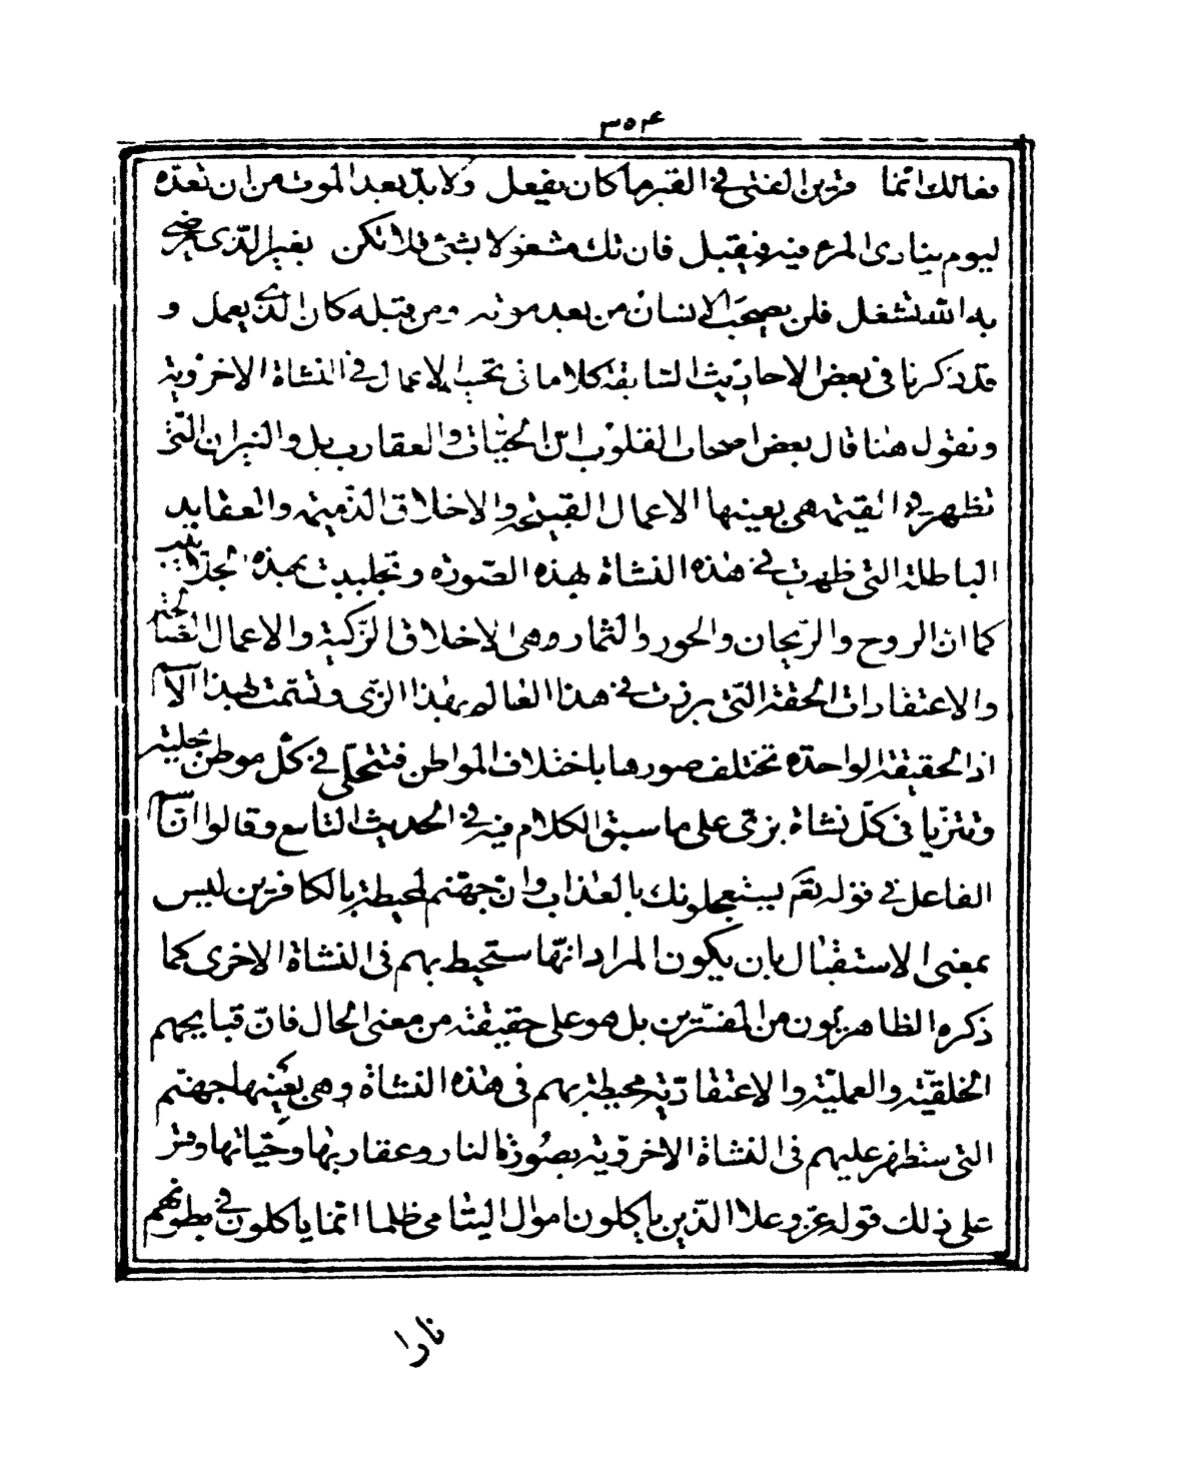 ٣٥٤
فعالك انما قرين الفتى فى القبر ما كان يفعل ولا بد بعد الموت من ان تعده
ليوم ينادى المرء فيه فيقبل فان تك مشغولا بشئ فلا تكن بغير الذى يرضى
به الله تشغل فلن يصحب الانسان من بعد موته ومن قبله كان الذى يعمل و
قد ذكرنا فى بعض الاحاديث السابقة كلاما فى تجسد الاعمال فى النشاة الاخروية
ونقول هنا قال بعض اصحاب القلوب ان الحيات والعقارب بل والنيران التى
تظهر فى القيمة هى بعينها الاعمال القبيحة والاخلاق الذميمة والعقايد
الباطلة التى ظهرت فى هذه النشاة بهذه الصورة وتجلببت بهذه الجلابيب
كما ان الروح والريحان والحور والثمار هى الاخلاق الزكية والاعمال الصالحة
والاعتقادات الحقة التى برزت فى هذا العالم بهذا الزى وتسمت بهذا الاسم
اذ الحقيقة الواحدة تختلف صورها باختلاف المواطن فتتحلى فى كل موطن بحلية
وتتزيا فى كل نشاة بزى على ما سبق الكلام فيه فى الحديث التاسع وقالوا ان اسم
الفاعل فى قوله تعم يستعجلونك بالعذاب وان جهنم لمحيطة بالكافرين ليس
بمعنى الاستقبال بان يكون المراد انها ستحيط بهم فى النشاة الاخرى كما
ذكره الظاهريون من المفسرين بل هو على حقيقته من معنى الحال فان قبايحهم
الخلقية والعملية والاعتقادية محيطة بهم فى هذه النشاة وهى بعينها جهنم
التى ستظهر عليهم فى النشاة الاخروية بصورة النار وعقاربها وحياتها وقس
على ذلك قوله عز وعلا الذين ياكلون اموال اليتامى ظلما انما ياكلون فى بطونهم
نارا